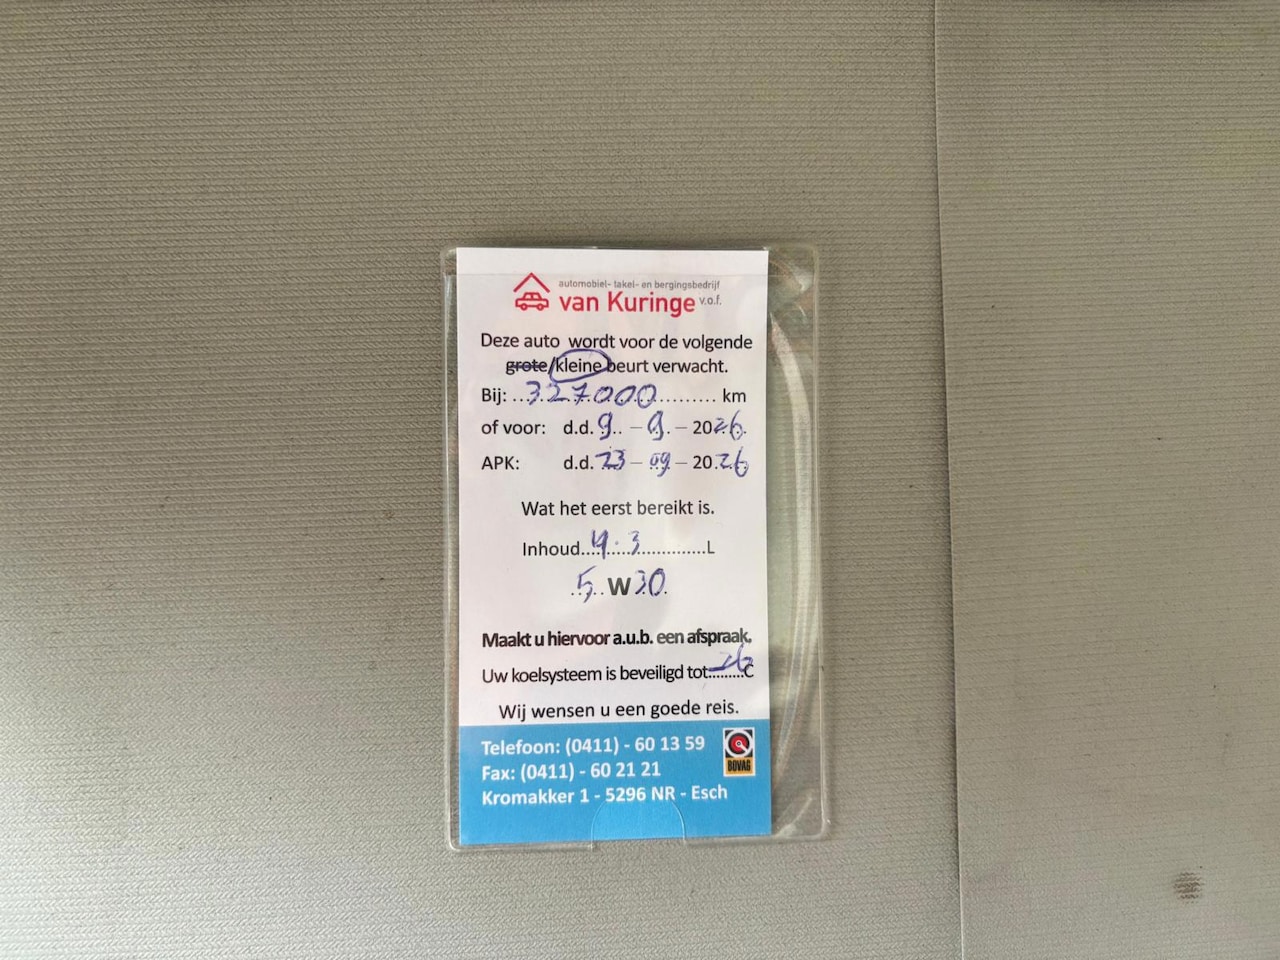 automobiel- takel- en bergingsbedrijf
van Kuringe v.o.f.
Deze auto wordt voor de volgende
grote/kleine beurt verwacht.
Bij: ...327000.......... km
of voor: d.d. 9.. – 9. – 2026.
APK: d.d. 23 – 09 – 20.26
Wat het eerst bereikt is.
Inhoud....4.3..............L
.5..W30.
Maakt u hiervoor a.u.b. een afspraak.
Uw koelsysteem is beveiligd tot:-26........C
Wij wensen u een goede reis.
Telefoon: (0411) - 60 13 59
BOVAG
Fax: (0411) - 60 21 21
Kromakker 1 - 5296 NR - Esch